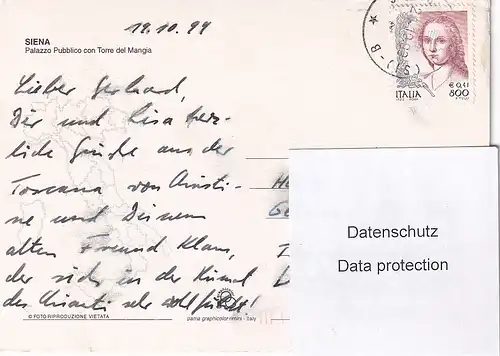 19.10.99
SIENA
Palazzo Pubblico con Torre del Mangia
Lieber Gerhard,
Dir und Lisa herz-
liche Grüße aus der
Toscana von Christi-
ne und Deinem
alten Freund Klaus,
der sich in der Heimat
des Chianti sehr wohl fühlt!
© FOTO RIPRODUZIONE VIETATA
italy
B
€ 0,41
ITALIA
800
Datenschutz
Data protection